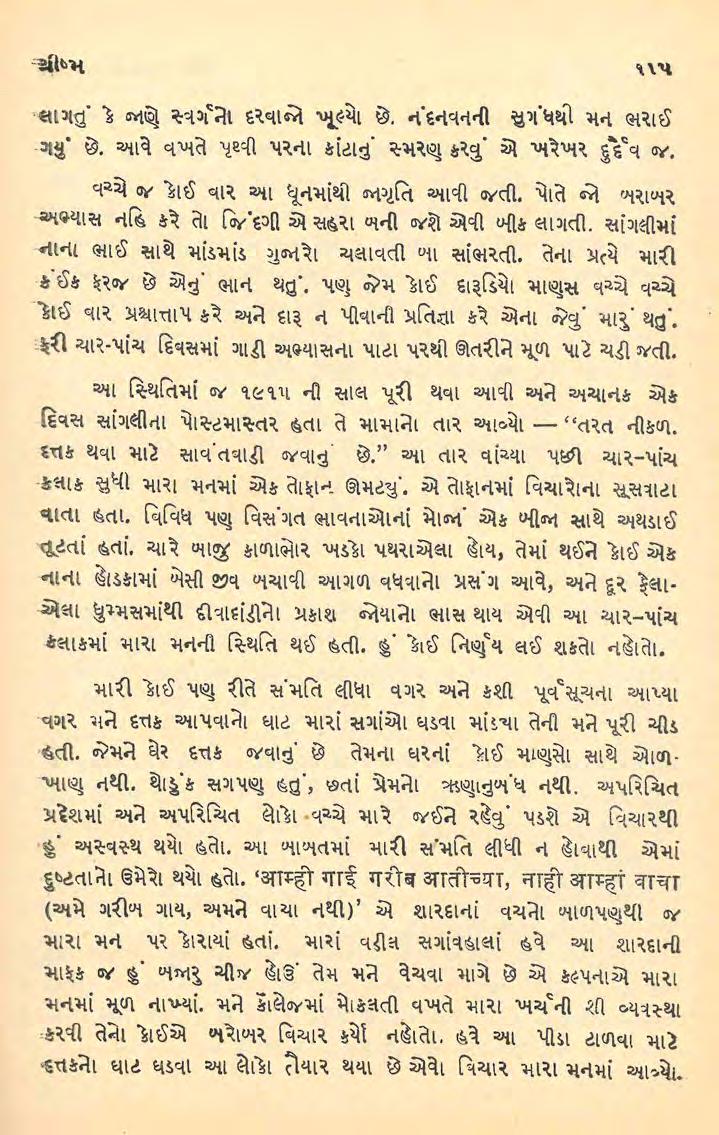 ગ્રીષ્મ ૧૧૫
લાગતું કે જાણે સ્વર્ગનો દરવાજો ખૂલ્યો છે. નંદનવનની સુગંધથી મન ભરાઈ
ગયું છે. આવે વખતે પૃથ્વી પરના કાંટાનું સ્મરણ કરવું એ ખરેખર દુર્દૈવ જ.
વચ્ચે જ કોઈ વાર આ ધૂનમાંથી જાગૃતિ આવી જતી. પોતે જો બરાબર
અભ્યાસ નહિ કરે તો જિંદગી એ સહરા બની જશે એવી બીક લાગતી. સાંગલીમાં
નાના ભાઈ સાથે માંડમાંડ ગુજારો ચલાવતી બા સાંભરતી. તેના પ્રત્યે મારી
કંઈક ફરજ છે એનું ભાન થતું. પણ જેમ કોઈ દારૂડિયો માણસ વચ્ચે વચ્ચે
કોઈ વાર પ્રશ્ચાત્તાપ કરે અને દારૂ ન પીવાની પ્રતિજ્ઞા કરે એના જેવું મારું થતું.
ફરી ચાર-પાંચ દિવસમાં ગાડી અભ્યાસના પાટા પરથી ઊતરીને મૂળ પાટે ચડી જતી.
આ સ્થિતિમાં જ ૧૯૧૫ ની સાલ પૂરી થવા આવી અને અચાનક એક
દિવસ સાંગલીના પોસ્ટમાસ્તર હતા તે મામાનો તાર આવ્યો — “તરત નીકળ.
દત્તક થવા માટે સાવંતવાડી જવાનું છે.” આ તાર વાંચ્યા પછી ચાર–પાંચ
કલાક સુધી મારા મનમાં એક તોફાન ઊમટ્યું. એ તોફાનમાં વિચારોના સૂસવાટા
વાતા હતા. વિવિધ પણ વિસંગત ભાવનાઓનાં મોજાં એક બીજા સાથે અથડાઈ
તૂટતાં હતાં. ચારે બાજુ કાળાભોર ખડકો પથરાએલા હોય, તેમાં થઈને કોઈ એક
નાના હોડકામાં બેસી જીવ બચાવી આગળ વધવાનો પ્રસંગ આવે, અને દૂર ફેલા-
એલા ધુમ્મસમાંથી દીવાદાંડીનો પ્રકાશ જોયાનો ભાસ થાય એવી આ ચાર–પાંચ
કલાકમાં મારા મનની સ્થિતિ થઈ હતી. હું કોઈ નિર્ણય લઈ શકતો નહોતો.
મારી કોઈ પણ રીતે સંમતિ લીધા વગર અને કશી પૂર્વસૂચના આપ્યા
વગર મને દત્તક આપવાનો ઘાટ મારાં સગાંઓ ઘડવા માંડયા તેની મને પૂરી ચીડ
હતી. જેમને ઘેર દત્તક જવાનું છે તેમના ઘરનાં કોઈ માણસો સાથે ઓળ-
ખાણ નથી. થોડુંક સગપણ હતું, છતાં પ્રેમનો ઋણાનુબંધ નથી. અપરિચિત
પ્રદેશમાં અને અપરિચિત લોકો વચ્ચે મારે જઈને રહેવું પડશે એ વિચારથી
હું અસ્વસ્થ થયો હતો. આ બાબતમાં મારી સંમતિ લીધી ન હોવાથી એમાં
દુષ્ટતાનો ઉમેરો થયો હતો. ‘आम्ही गाई गरीब आतीच्या, नाही आम्हां वाचा
(અમે ગરીબ ગાય, અમને વાચા નથી)’ એ શારદાનાં વચનો બાળપણથી જ
મારા મન પર કોરાયાં હતાં. મારાં વડીલ સગાંવહાલાં હવે આ શારદાની
માફક જ હું બજારુ ચીજ હોઉં તેમ મને વેચવા માગે છે એ કલ્પનાએ મારા
મનમાં મૂળ નાખ્યાં. મને કૉલેજમાં મોકલતી વખતે મારા ખર્ચની શી વ્યવસ્થા
કરવી તેનો કોઈએ બરોબર વિચાર કર્યો નહોતો. હવે આ પીડા ટાળવા માટે
દત્તકનો ઘાટ ઘડવા આ લોકો તૈયાર થયા છે એવો વિચાર મારા મનમાં આવ્યો.